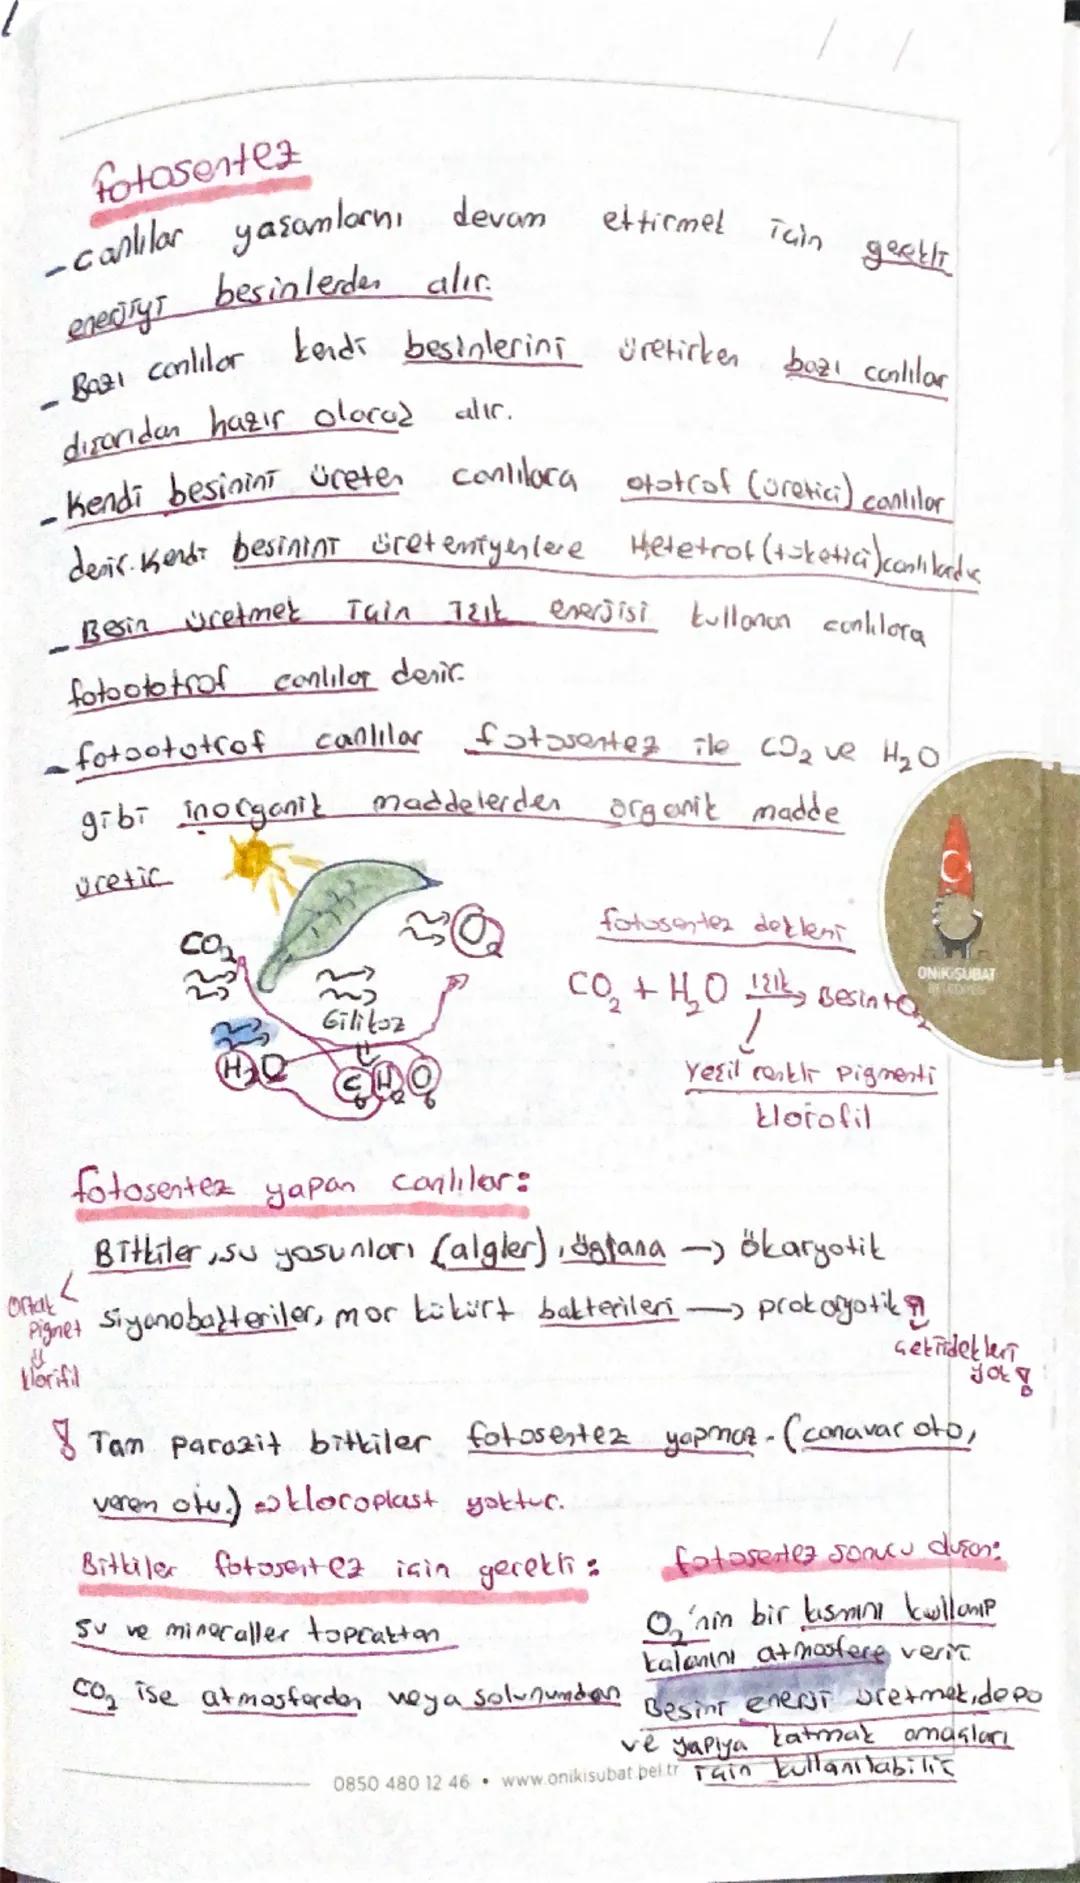 fotosentez
- canlılar yaşamlarnı devam ettirmek için gerekli
enerjiyi besinlerden alır.
- Bazı canlılar kendi besinlerini üretirken bazı canlılar
dışarıdan hazır olarak alır.
- Kendi besinini üreten canlılara ototrof (üretici) canlılar
denir. Kendi besinini üretemiyenlere Hetetrof (tüketici) canlılardır
- Besin üretmek için ışık enerjisi kullanan canlılara
fotoototrof canlılar denir.
- fotoototrof canlılar fotosentez ile CO₂ ve H₂O
gibi inorganik maddelerden organik madde
üretir
CO₂
O₂
Gilikoz
H₂O
C₆H₁₂O₆
fotosentez deklemi
CO₂ + H₂O ışık → Besin + O₂
Yeşil renkli pigmenti
klorofil
ONİKİŞUBAT
BELEDİYESİ
fotosentez yapan canlılar:
Bitkiler, su yosunları (algler), öglana → ökaryotik
siyanobakteriler, mor kükürt bakterileri → prokaryotik
Ortak
Pigmet
⇓
klorifil
çekirdekleri
yok!
! Tam parazit bitkiler fotosentez yapmaz. (canavar oto,
verem otu.) ⇒ kloroplast yoktur.
Bitkiler fotosentez için gerekli:
su ve mineraller topraktan
CO₂ ise atmosferden veya solunumdan
fotosentez sonucu duşan:
O₂'nin bir kısmını kullanıp
kalanını atmosfere verir
Besini enerji üretmek, depo
ve yapıya katmak amaçları
için kullanılabilir
0850 480 12 46 • www.onikisubat.bel.tr